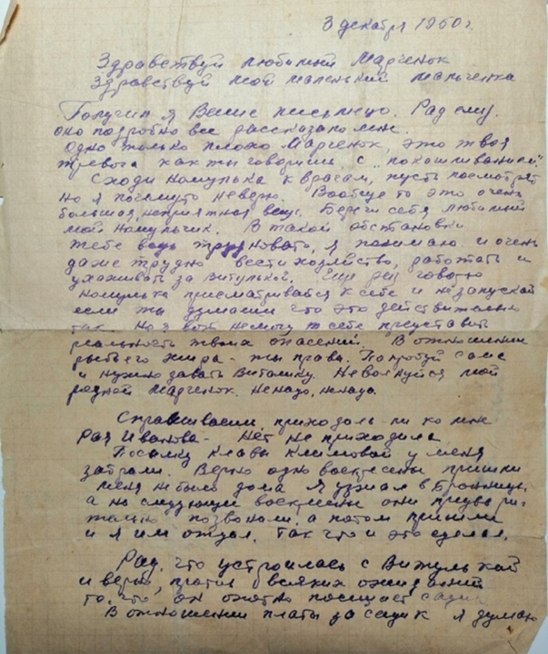 3 декабря 1950 г.
Здравствуй любимый Марченок
Здравствуй мой маленький мальченка
Получил я Ваше письмецо. Рад ему.
оно подробно все рассказало мне.
Одно только плохо Марченок, это твоя
тревога как ты говоришь с "покашливанием"
Сходи мамулька к врачам, пусть посмотрят
но я почемуто неверю. Вообще то это очень
большая, неприятная вещь. Береги себя любимый
мой мамульчик. В такой обстановке
тебе ведь трудновато, я понимаю и очень
даже трудно вести хозяйство, работать и
ухаживать за Витулькой. Еще раз говорю
мамулька присматривайся к себе и незапускай
если ты думаешь что это действительно
так. Но я вот немогу себе представить
реальность твоих опасений. В отношении
рыбьего жира - ты права. Попробуй сама
и нужно давать Виталику. Неволнуйся мой
родной Марченок. Ненадо, ненадо.
Спрашиваешь, приходила ли ко мне
Рая Иванова - нет не приходила
Посылку Клавы Климовой у меня
забрали. Верно одно воскресенье пришли
меня небыло дома я уезжал в Бронницы,
а на следующее воскресенье они предвари-
тельно позвонили, а потом пришли
и я им отдал. Так что и это сделал.
Рад, что устроилась с Витулькой
и верно, против всяких ожиданий
то, что он охотно посещает садик
В отношении платы за садик я думаю